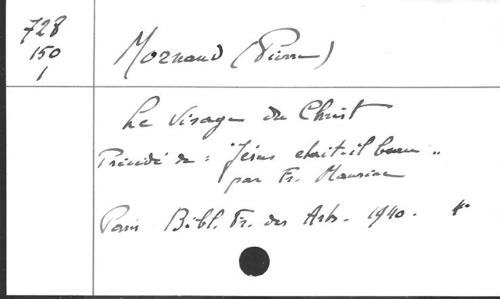 728
150
1
Mornand (Pierre)
Le Visage du Christ
Précédé de : "Jésus était-il beau"
par Fr. Mauriac
Paris Bibl. Fr. des Arts. 1940. 4°